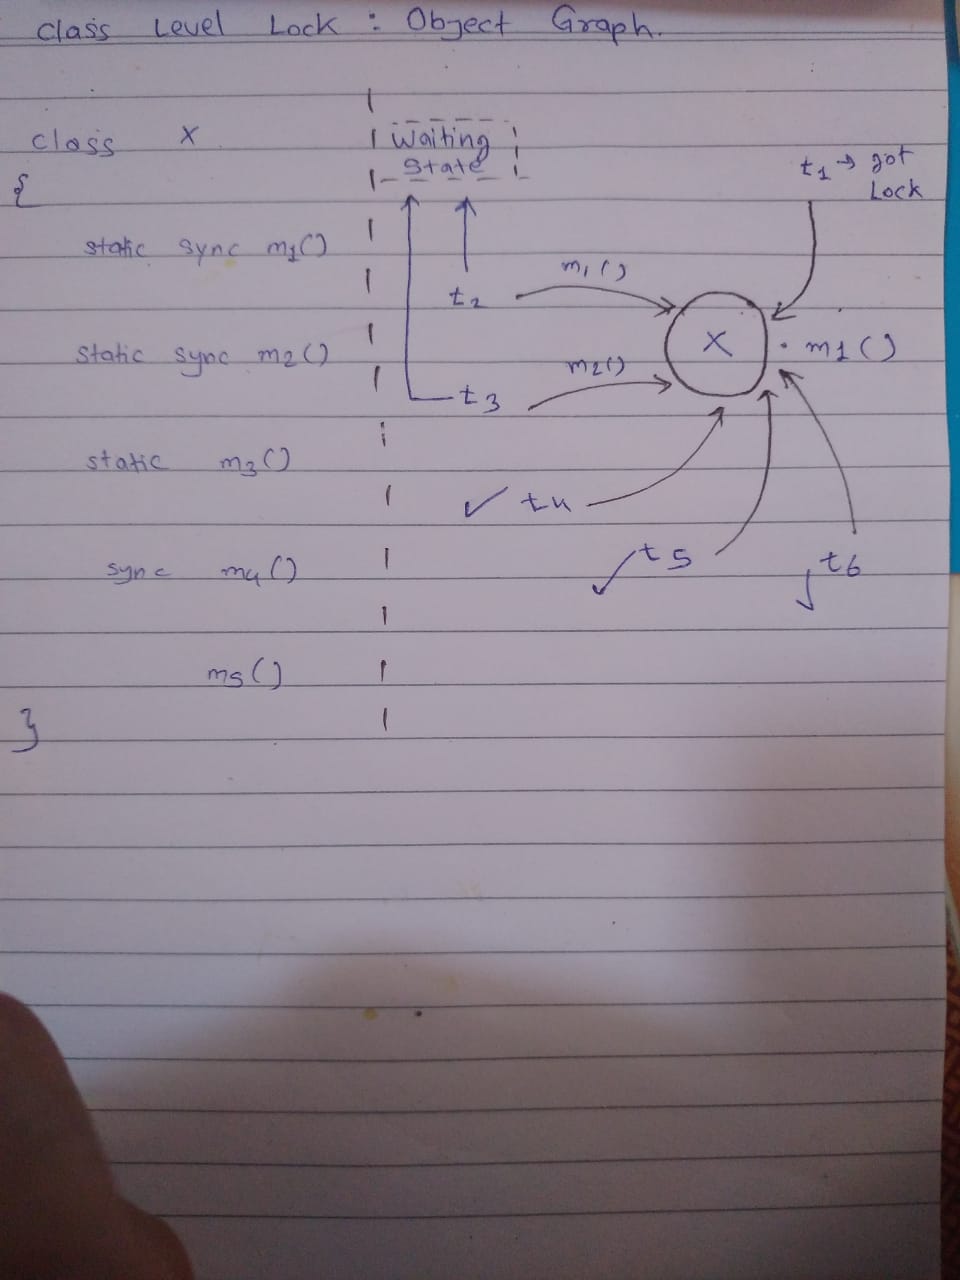 Class Level Lock : Object Graph.
class X
{
static sync m1()
static sync m2()
static m3()
sync m4()
m5()
}
Waiting
State
t1 → got
Lock
t2
m1()
X . m1()
t3
m2()
t4
t5
t6